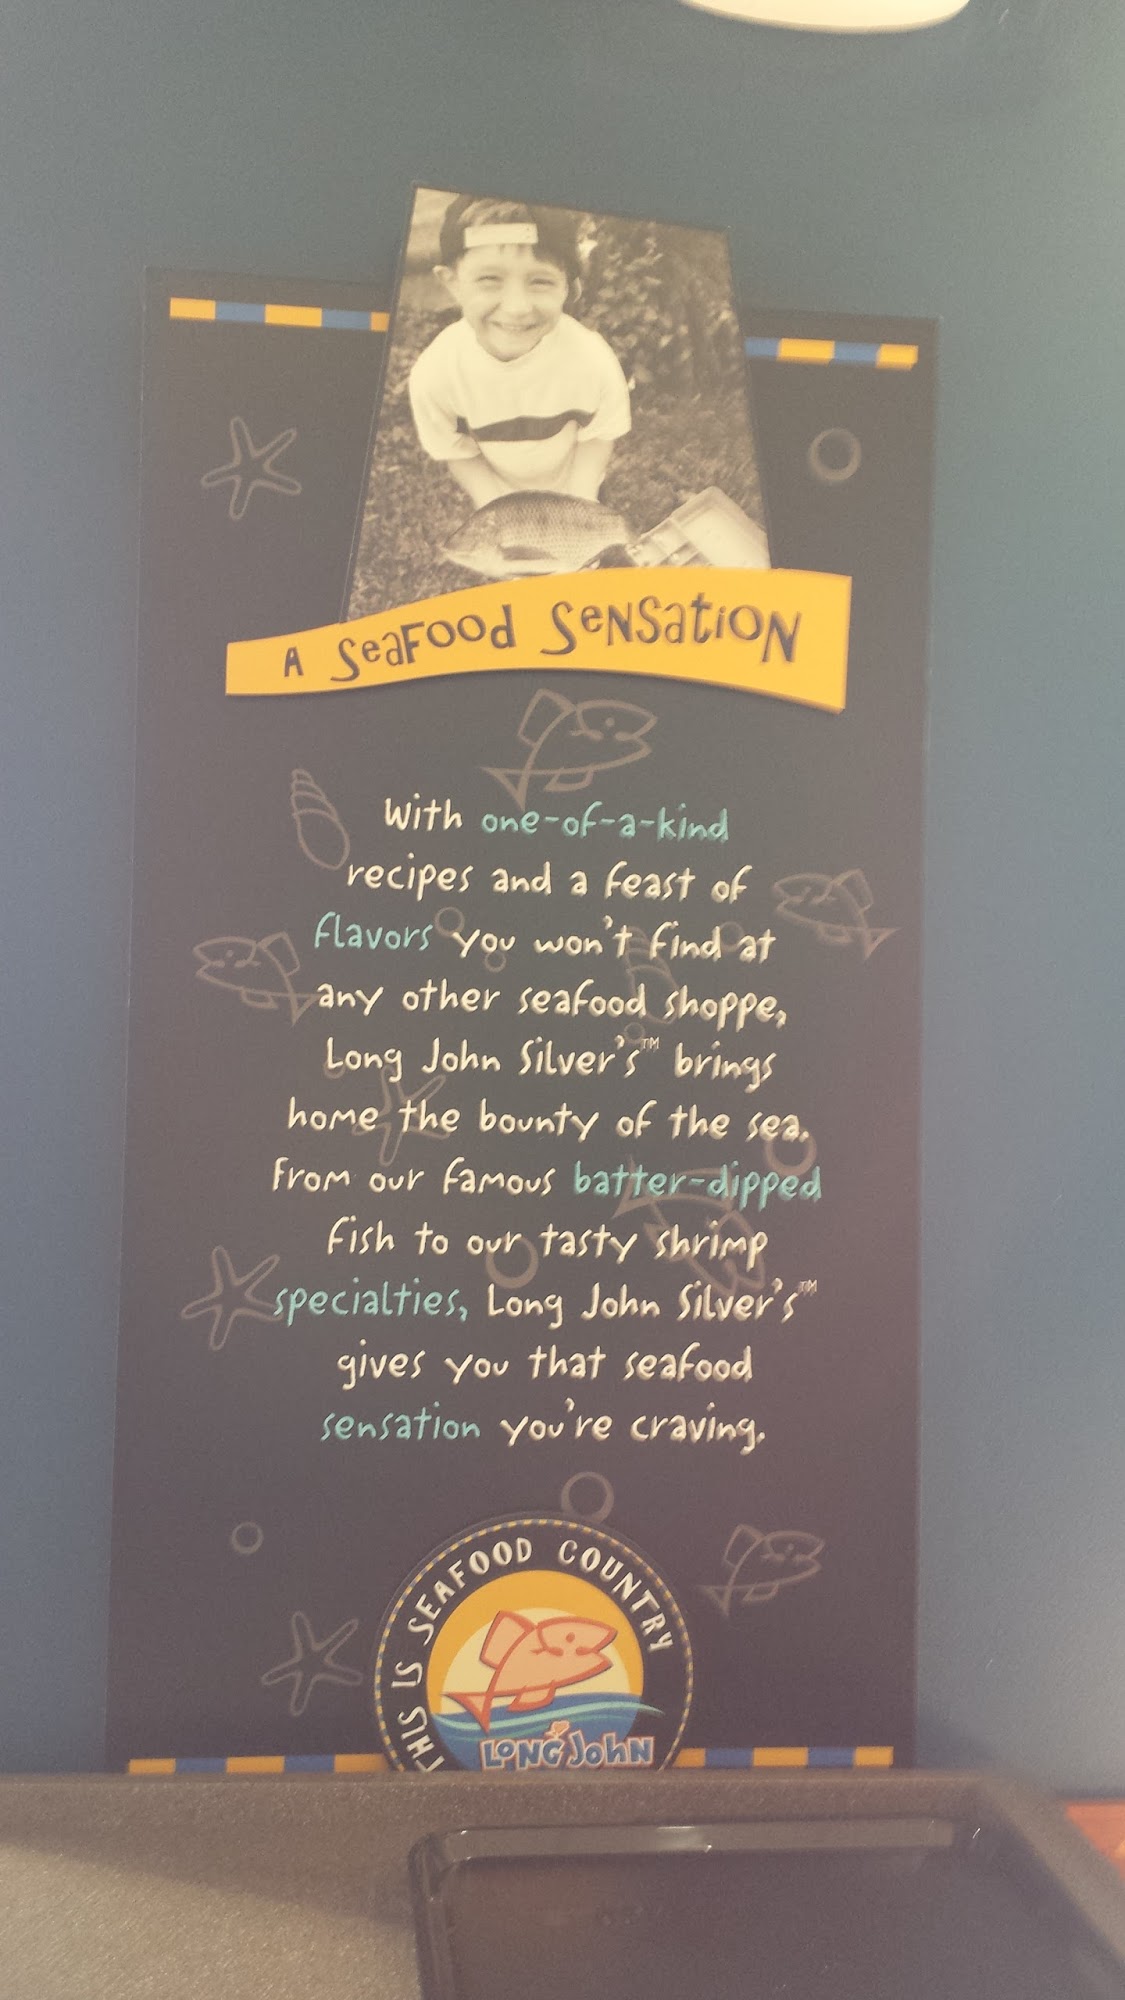 A SeaFOOD SeNSatiON
With one-of-a-kind
recipes and a feast of
flavors you won't find at
any other seafood shoppe,
Long John Silver's™ brings
home the bounty of the sea.
From our famous batter-dipped
fish to our tasty shrimp
specialties, Long John Silver's™
gives you that seafood
sensation you're craving.
THIS IS SEAFOOD COUNTRY
LONG JOHN